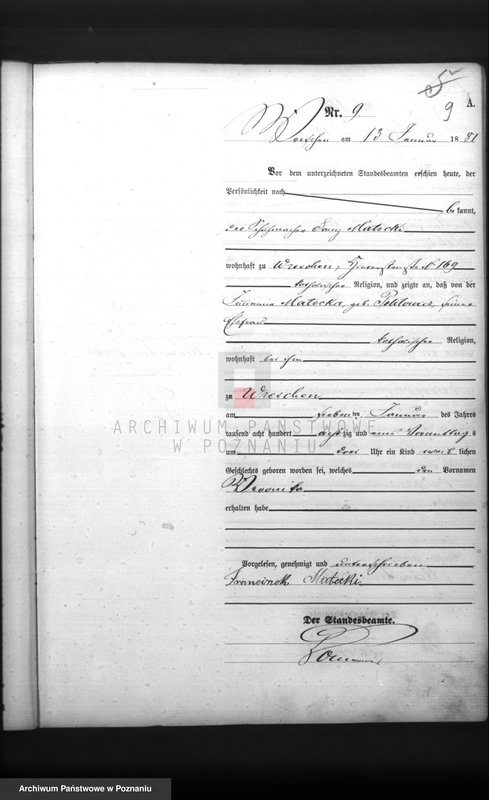 5
9
A.
Nr. 9
Wreschen am 13 Januar 1881
Vor dem unterzeichneten Standesbeamten erschien heute, der
Persönlichkeit nach
bekannt,
der Schuhmacher Franz Matecki
wohnhaft zu Wreschen, № 169
katholischer Religion, und zeigte an, daß von der
Julianna Matecka, geb. seiner
Ehefrau
katholischer Religion,
wohnhaft bei ihm
zu Wreschen
am sieben ten Januar des Jahres
tausend acht hundert acht zig und eins Vormittag s
um drei Uhr ein Kind weib lichen
Geschlechts geboren worden sei, welches den Vornamen
Veronika
erhalten habe
Vorgelesen, genehmigt und unterschrieben
Franciszek Matecki
Der Standesbeamte.
ARCHIWUM PAŃSTWOWE
W POZNANIU
Archiwum Państwowe w Poznaniu